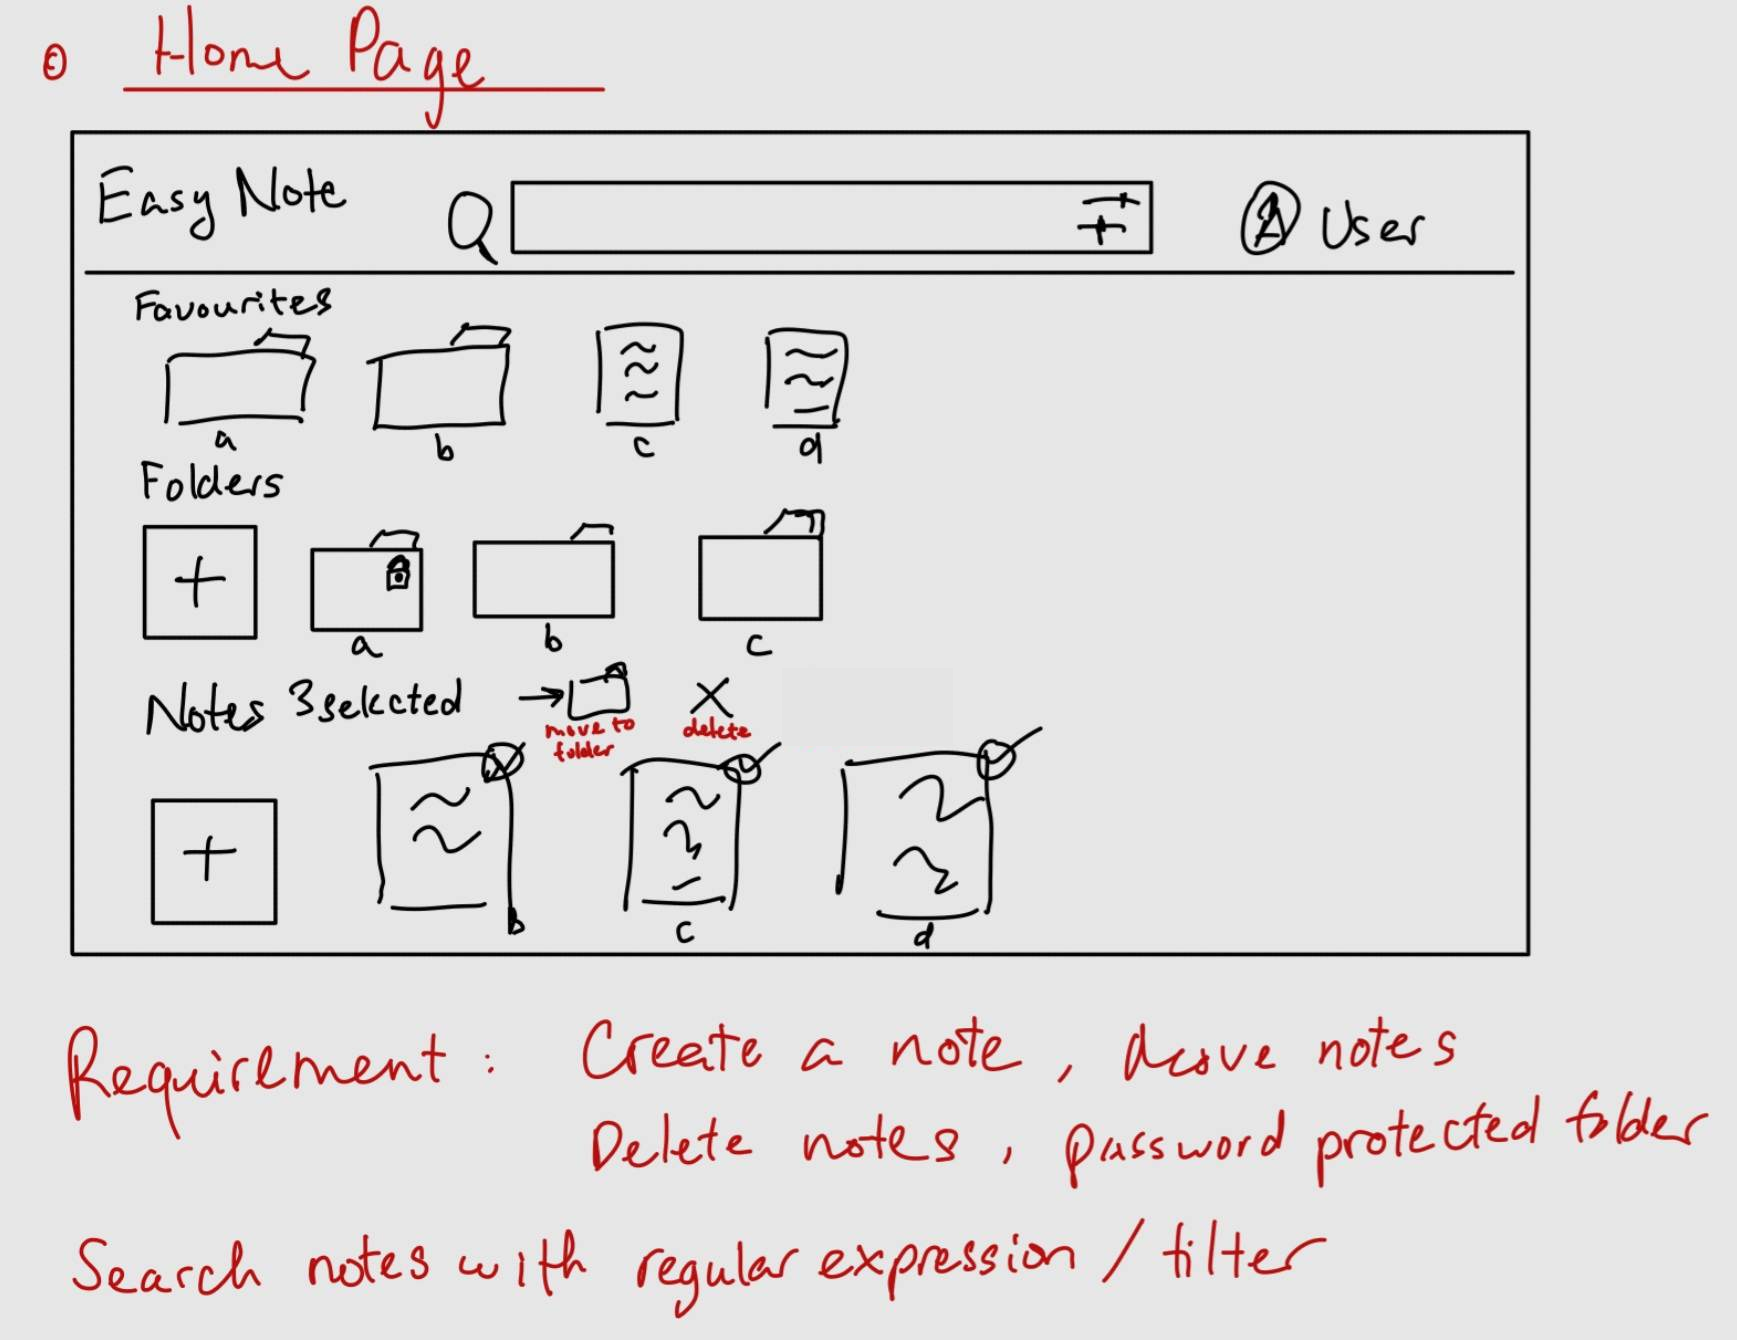 Home Page
Easy Note
User
Favourites
a b c d
Folders
+ a b c
Notes 3 selected
move to
folder
delete
+ b c d
Requirement : Create a note, notes
Delete notes, password protected folder
Search notes with regular expression / filter